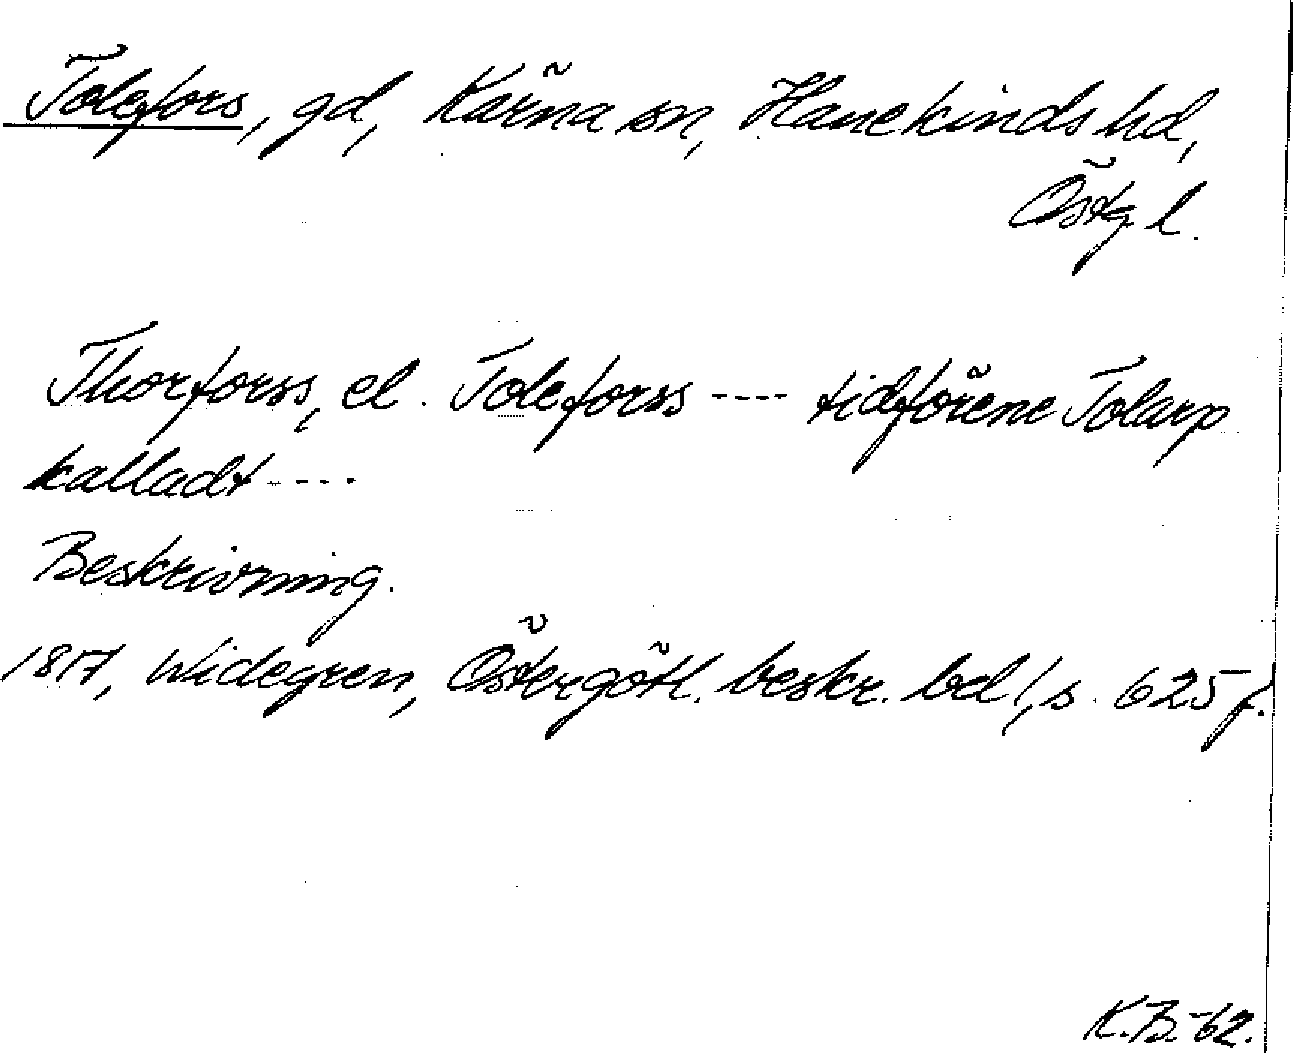 Tolefors, gd, Kärna sn, Hanekinds hd,
Östg. l.
Thorforss, el. Toleforss ---- tidförene Tolarp
kalladt ----
Beskrivning.
1817, Widegren, Östergötl. beskr. bd 1, s. 625 f.
K.B.-62.